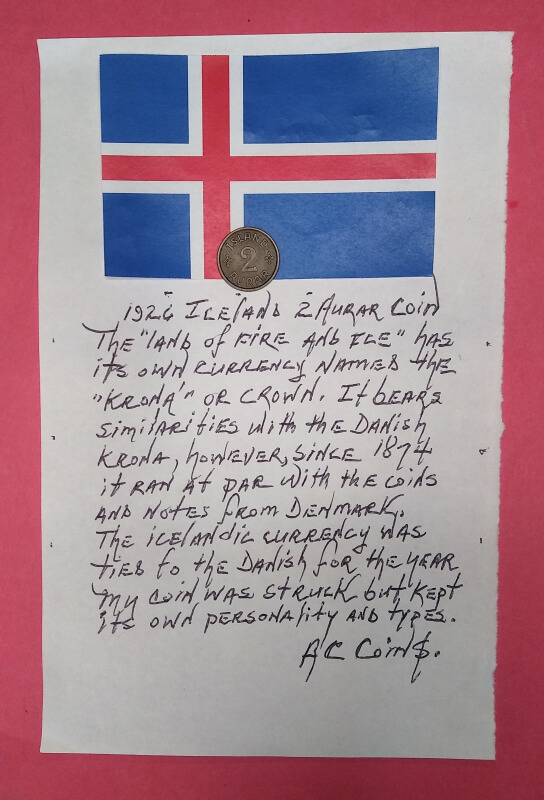 ISLAND
2
AURAR
1926 ICELAND 2 AURAR COIN
THE "LAND OF FIRE AND ICE" HAS
ITS OWN CURRENCY NAMED THE
"KRONA" OR CROWN. IT BEARS
SIMILARITIES WITH THE DANISH
KRONA, HOWEVER, SINCE 1874
IT RAN AT PAR WITH THE COINS
AND NOTES FROM DENMARK.
THE ICELANDIC CURRENCY WAS
TIES TO THE DANISH FOR THE YEAR
MY COIN WAS STRUCK BUT KEPT
ITS OWN PERSONALITY AND TYPES.
AC COIN$.